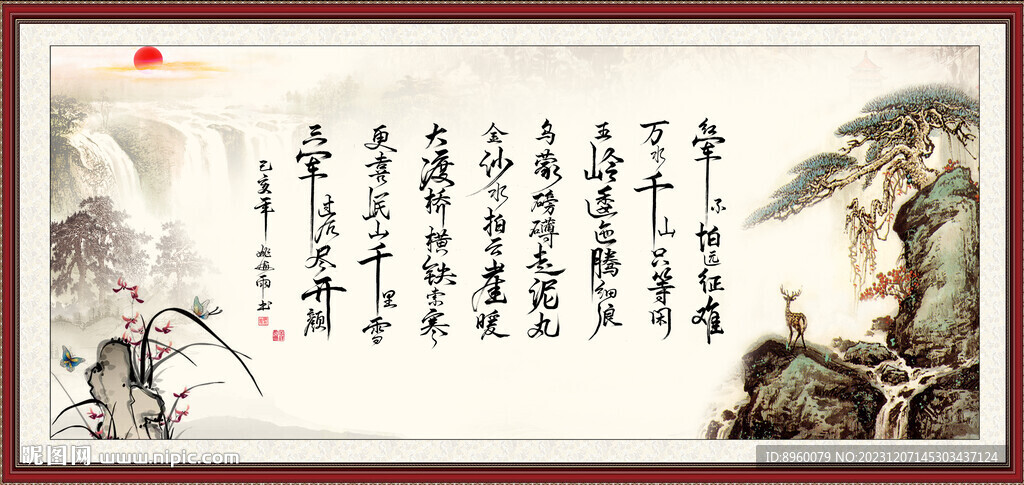 红军不怕远征难
万水千山只等闲
五岭逶迤腾细浪
乌蒙磅礴走泥丸
金沙水拍云崖暖
大渡桥横铁索寒
更喜岷山千里雪
三军过后尽开颜
己亥年 雨书
昵图网 www.nipic.com
ID:8960079 NO:20231207145303437124